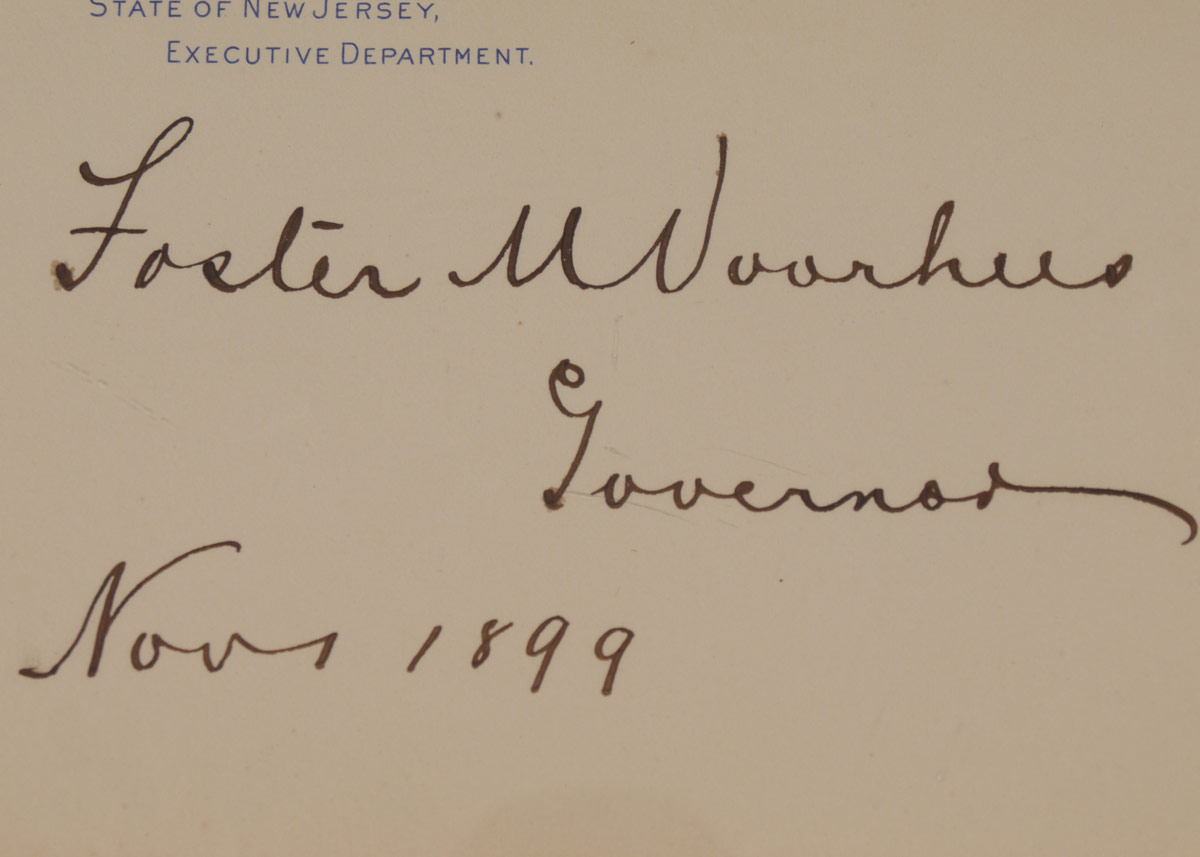 STATE OF NEW JERSEY,
EXECUTIVE DEPARTMENT.
Foster M Voorhees
Governor
Nov 1 1899